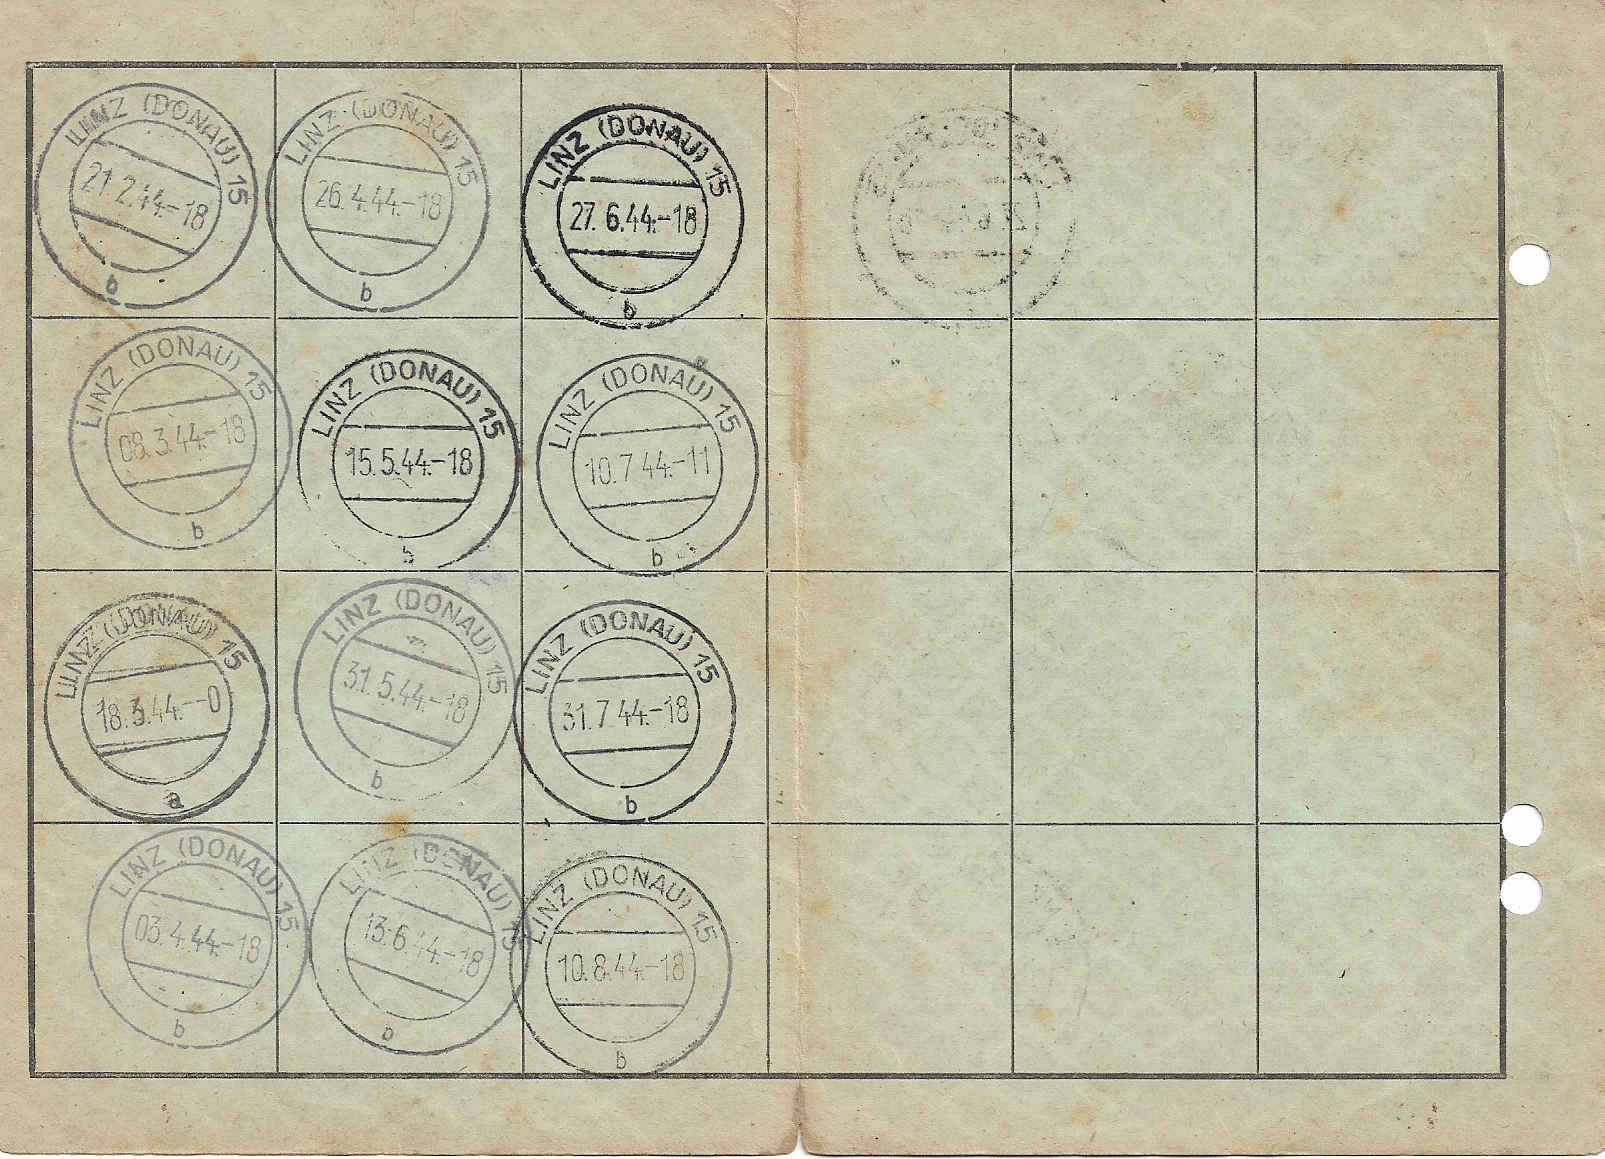 LINZ (DONAU) 15
21.2.44.-18
b
LINZ (DONAU) 15
26.4.44.-18
b
LINZ (DONAU) 15
27.6.44.-18
b
LINZ (DONAU) 15
08.3.44.-18
b
LINZ (DONAU) 15
15.5.44.-18
b
LINZ (DONAU) 15
10.7.44.-11
b
LINZ (DONAU) 15
18.3.44.--0
a
LINZ (DONAU) 15
31.5.44.-18
b
LINZ (DONAU) 15
31.7.44.-18
b
LINZ (DONAU) 15
03.4.44.-18
b
LINZ (DONAU) 15
13.6.44.-18
b
LINZ (DONAU) 15
10.8.44.-18
b